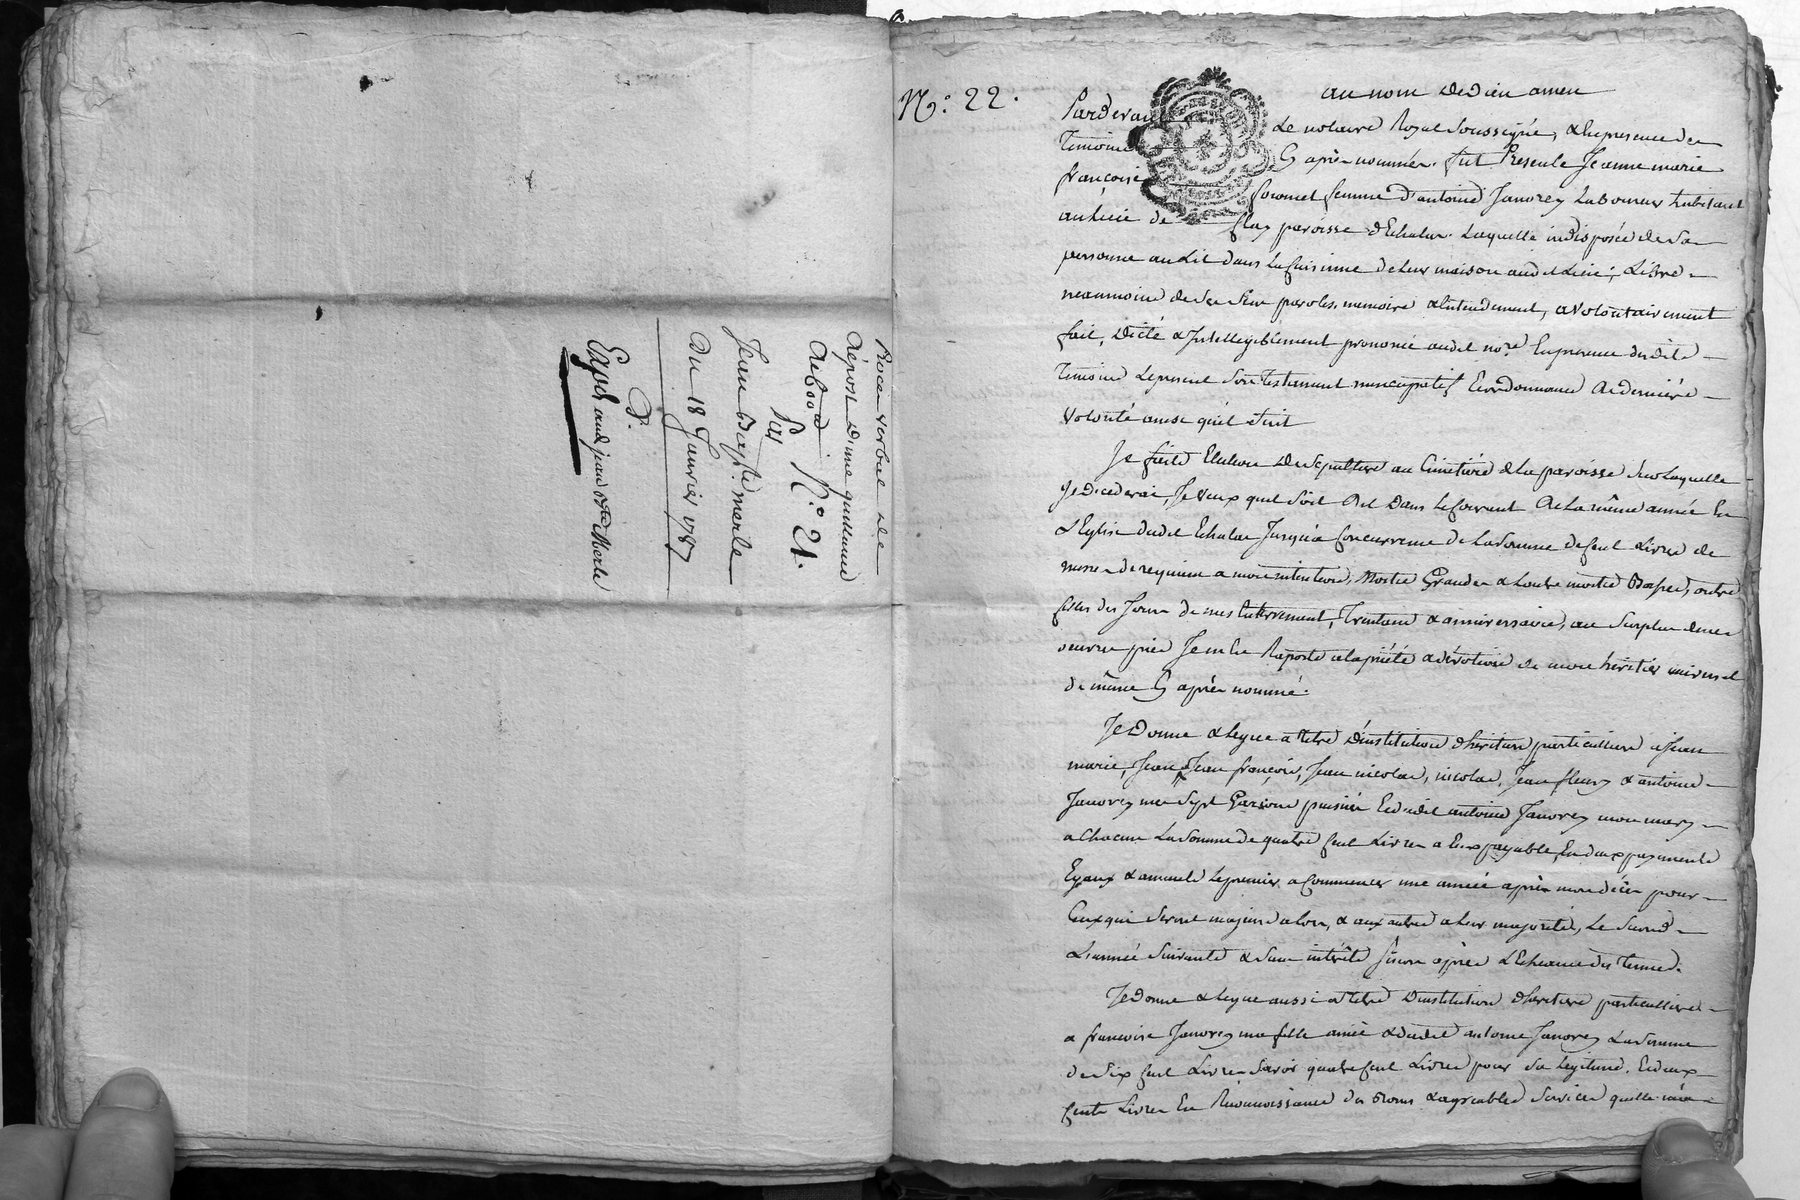 Procés verbal de
dépost d'une quittance
Abood N.° 21.
Par
Jean Bapt.te merle
Du 18 Janvier 1787
D.
Exp.é aud. jean Bte Merle
N.° 22.
au nom de Dieu amen
Pardevant Le notaire Royal Soussigné, & En presence des
Temoins Cy après nommés. fut Presente Jeanne marie
françoise femme d'antoine Janorey Laboureur habitant
au Lieu de flay paroisse d'Echalas. Laquelle indisposée de Sa
personne au Lit dans La Cuisinne de Leur maison aud.t Lieu; Libre
neanmoins de Ses Sens paroles, memoire & Entendement, a volontairement
fait, Dicté & Intelligiblement prononcé audit no.re En presence desdits
Temoins Le present Son Testament nuncupatif Et ordonnance de derniere
volonté ainsi qu'il Suit
Je fais Election de Sepulture au Cimetiere de La paroisse Sur Laquelle
Je decederai, Je veux quil Soit Dit Dans Le Courant de La même année En
L'Eglise dudit Echalas Jusqu'a Concurrence de La Somme de Cent Livres de
messes de requiem a mon intention, Moitié Grandes & L'autre moitié Basses, outre
Celles des Jours de mes Enterrement, Trentaine & anniversaire, au Surplus des
oeuvres pies Je m'en Raporte a la piété & dévotion de mon héritier universel
de même Cy après nommé.
Je Donne & Legue a Titre D'institution d'héritiers particuliers a Jean
marie, Jean, Jean françois, Jean nicolas, nicolas, Jean fleury & antoine
Janorey mes Sept Garçons puisnés & dudit antoine Janorey mon mary
a Chacun La Somme de quatre Cent Livres a Eux payable, En deux payements
Egaux & annuels Le premier a Commencer une année après mon décès pour
Ceux qui Seront majeurs alors, & aux autres a Leur majorité, Le Second
L'année Suivante & Sans intérêts Sinon après L'Echeance des termes.
Je Donne & Legue aussi a titre D'institution d'heritiere particulliere
a francoise Janorey ma fille ainée & dudit antoine Janorey La Somme
de Six Cent Livres Savoir quatre Cent Livres pour Sa Legitime, Et deux
Cents Livres En Reconnoissance des Bons & agreables Services quelle m'a